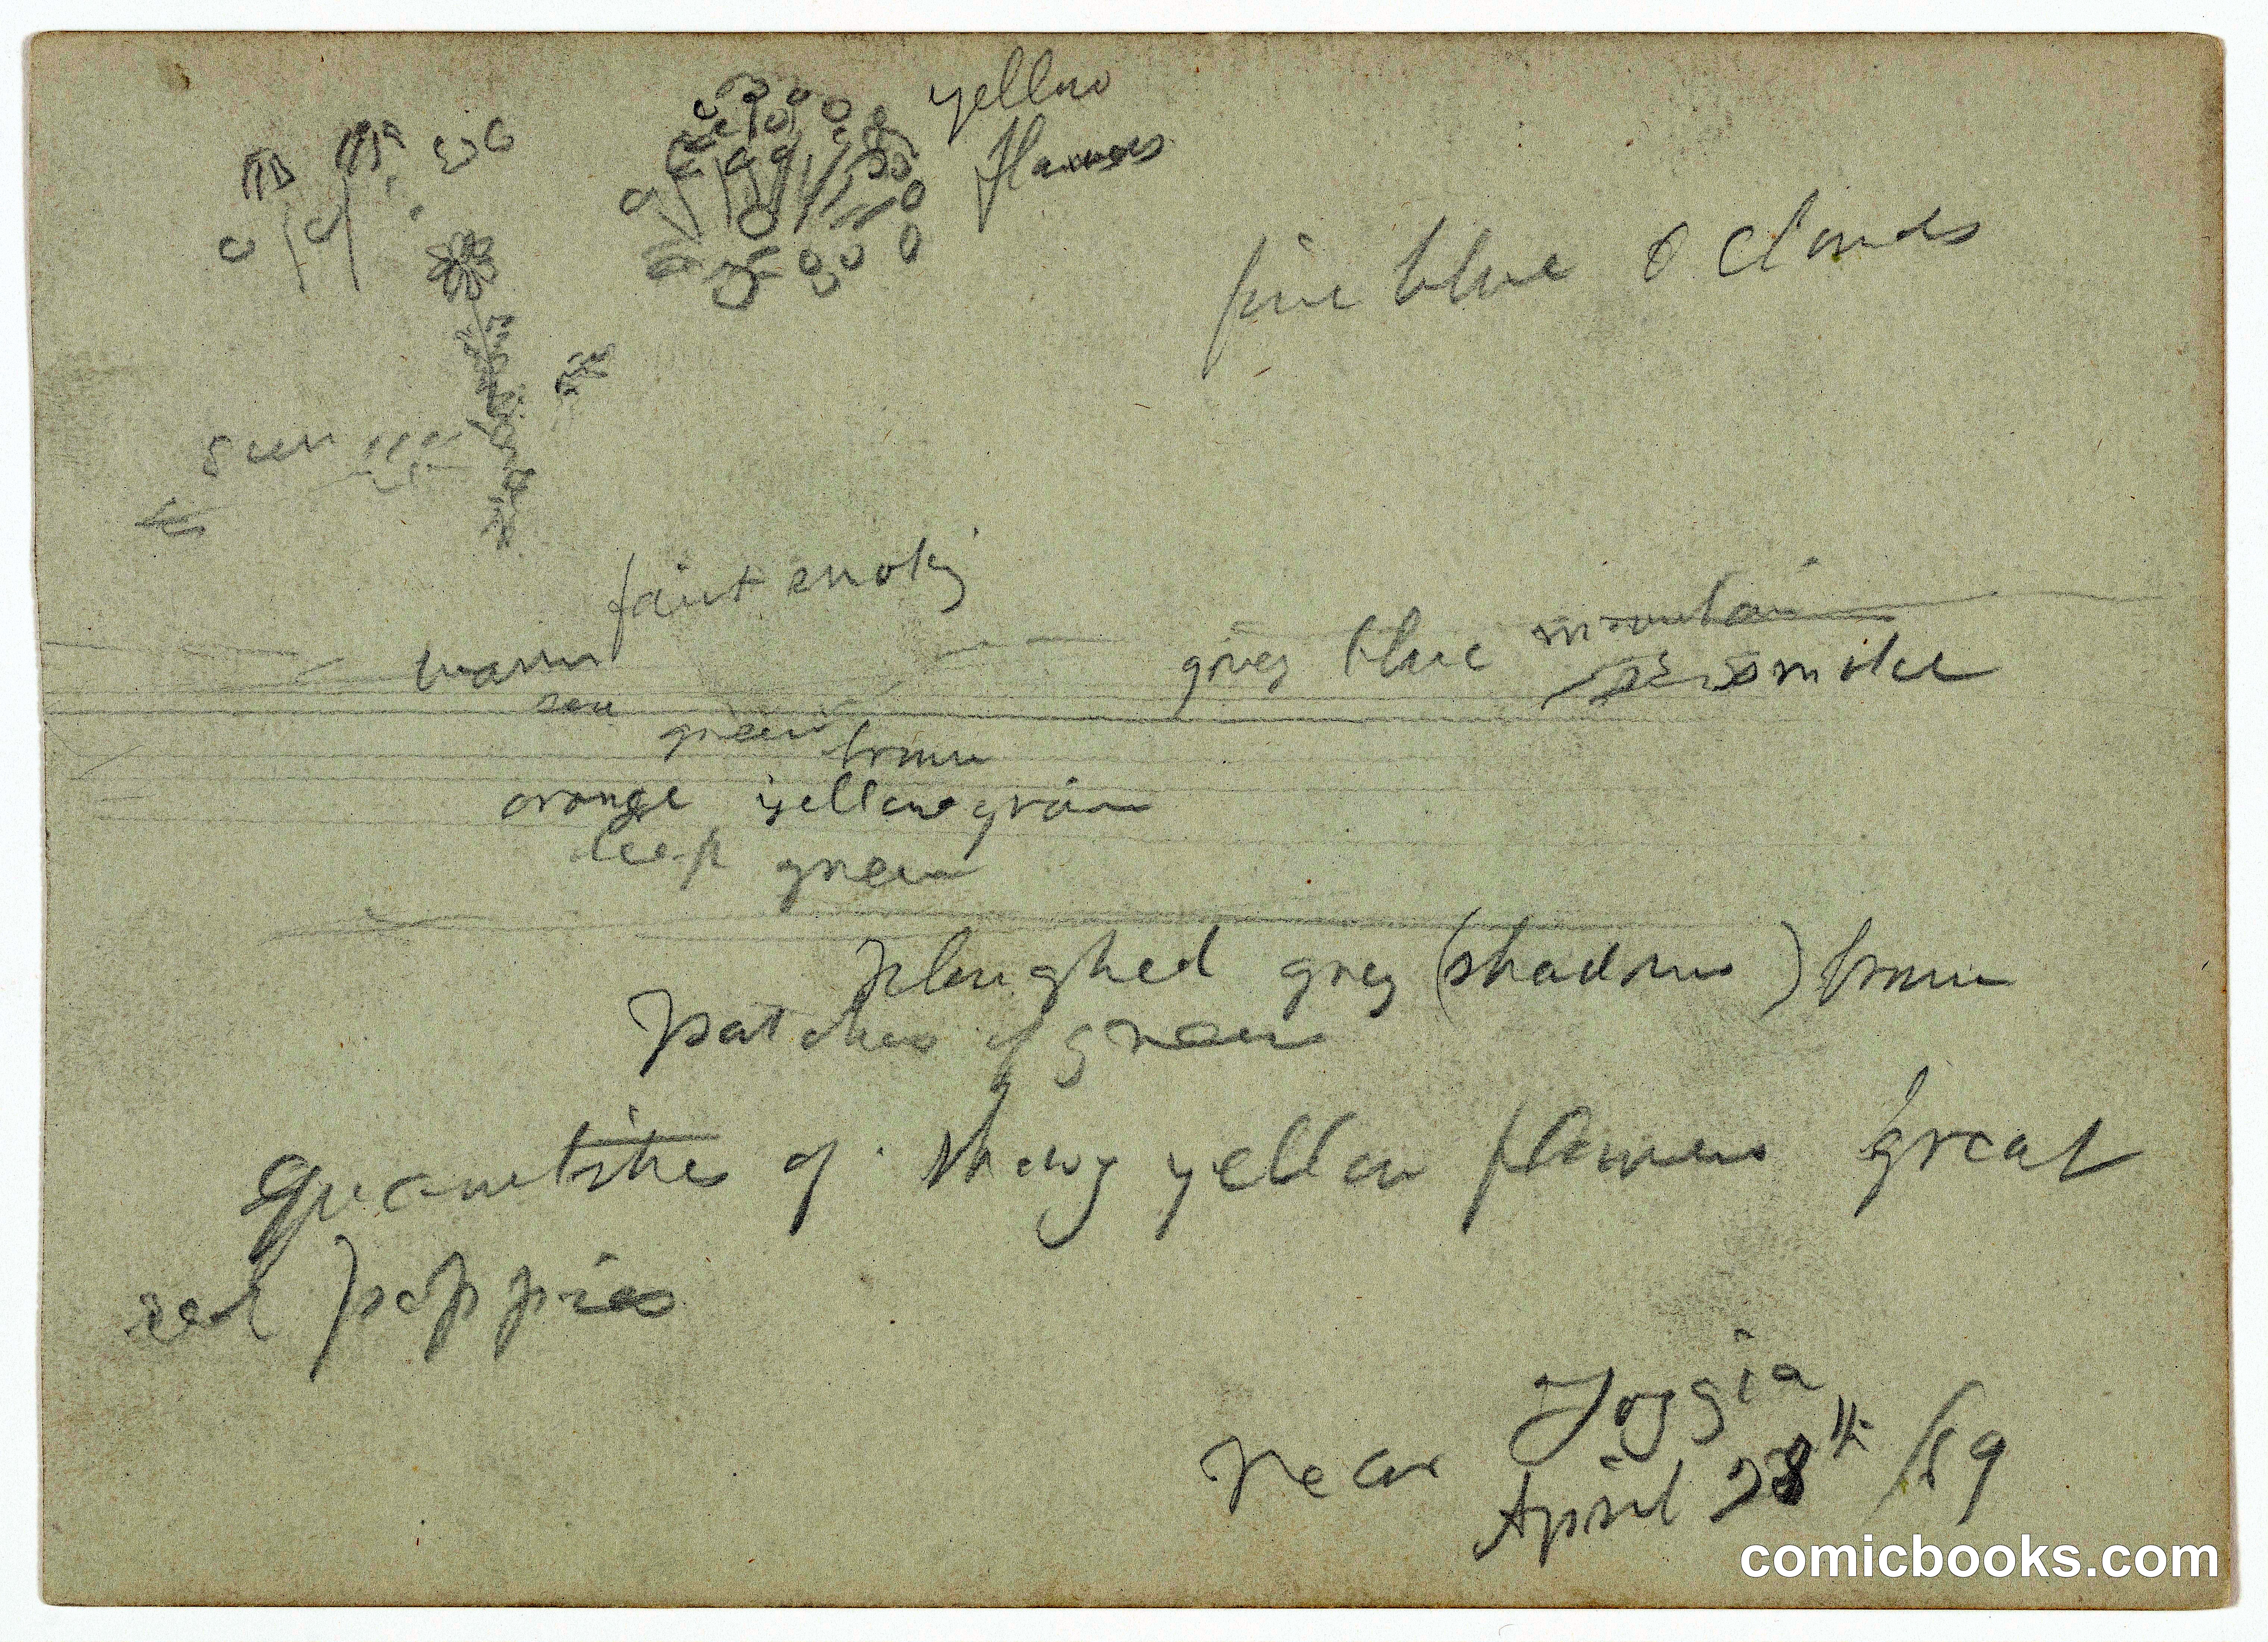 yellow
flowers
fine blue & clouds
faint smoky
warm
grey blue mountain
smoke
green
brown
orange yellow green
deep green
ploughed grey (shadow) brown
patches of green
quantities of showy yellow flowers great
red poppies
near Foggia
April 28th /89
comicbooks.com